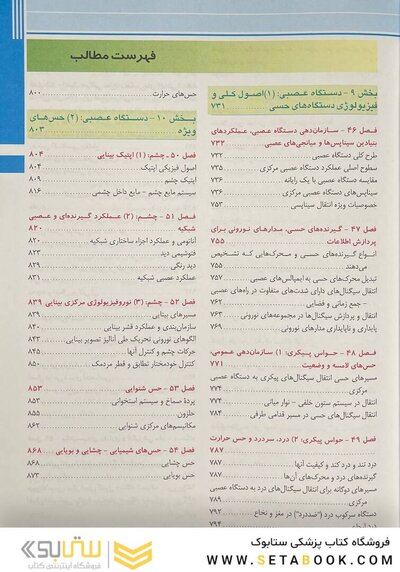 فهرست مطالب
بخش ۹ - دستگاه عصبی: (۱) اصول کلی و
فیزیولوژی دستگاه‌های حسی ۷۳۱
فصل ۴۶ - سازمان‌دهی دستگاه عصبی، عملکردهای
بنیادین سیناپس‌ها و میانجی‌های عصبی ۷۳۲
طرح کلی دستگاه عصبی ۷۳۲
سطوح اصلی عملکرد دستگاه مرکزی ۷۳۵
مقایسه دستگاه عصبی با یک رایانه ۷۳۶
سیناپس‌های دستگاه عصبی مرکزی ۷۳۶
خصوصیات ویژه انتقال سیناپسی ۷۵۳
فصل ۴۷ - گیرنده‌های حسی، مدارهای نورونی برای
پردازش اطلاعات ۷۵۵
انواع گیرنده‌های حسی و محرک‌هایی که تشخیص
می‌دهند ۷۵۵
تبدیل محرک‌های حسی به ایمپالس‌های عصبی ۷۵۷
انتقال سیگنال‌های دارای شدت‌های متفاوت در راه‌های عصبی
- جمع زمانی و فضایی ۷۶۲
انتقال و پردازش سیگنال‌ها در مجموعه‌های نورونی ۷۶۳
پایداری و ناپایداری مدارهای نورونی ۷۶۹
فصل ۴۸ - حواس پیکری: (۱) سازمان‌دهی عمومی،
حس‌های لامسه و وضعیت ۷۷۱
مسیرهای حسی انتقال سیگنال‌های پیکری به دستگاه عصبی
مرکزی ۷۷۴
انتقال در سیستم ستون خلفی - نوار میانی ۷۷۴
انتقال سیگنال‌های حسی در مسیر قدامی طرفی ۷۸۴
فصل ۴۹ - حواس پیکری: (۲) درد، سردرد و حس حرارت
۷۸۷
درد تند و درد کند و کیفیت آنها ۷۸۷
گیرنده‌های درد و محرک‌های آن‌ها ۷۸۷
مسیرهای دوگانه برای انتقال سیگنال‌های درد به دستگاه عصبی
مرکزی ۷۸۹
دستگاه سرکوب درد ("ضددرد") در مغز و نخاع ۷۹۲
حس‌های حرارت ۸۰۰
بخش ۱۰ - دستگاه عصبی: (۲) حس‌های
ویژه ۸۰۳
فصل ۵۰ - چشم: (۱) اپتیک بینایی ۸۰۴
اصول فیزیکی اپتیک ۸۰۴
اپتیک چشم ۸۰۹
سیستم مایع چشم - مایع داخل چشمی ۸۱۶
فصل ۵۱ - چشم: (۲) عملکرد گیرنده‌ای و عصبی
شبکیه ۸۲۰
آناتومی و عملکرد اجزاء ساختاری شبکیه ۸۲۰
فتوشیمی دید ۸۲۳
دید رنگی ۸۲۹
عملکرد عصبی شبکیه ۸۳۱
فصل ۵۲ - چشم: (۳) نوروفیزیولوژی مرکزی بینایی ۸۳۹
مسیرهای بینایی ۸۳۹
سازمان‌بندی و عملکرد قشر بینایی ۸۴۰
الگوهای نورونی تحریک طی آنالیز تصویر بینایی ۸۴۳
حرکات چشم و کنترل آنها ۸۴۵
کنترل خودمختار تطابق و قطر مردمک ۸۵۰
فصل ۵۳ - حس شنوایی ۸۵۳
پردهٔ صماخ و سیستم استخوانی ۸۵۳
حلزون ۸۵۵
مکانیسم‌های مرکزی شنوایی ۸۶۲
فصل ۵۴ - حس‌های شیمیایی - چشایی و بویایی ۸۶۸
حس چشایی ۸۶۸
حس بویایی ۸۷۳
فروشگاه کتاب پزشکی ستابوک
WWW.SETABOOK.COM
ستابوک
فروشگاه اینترنتی کتاب